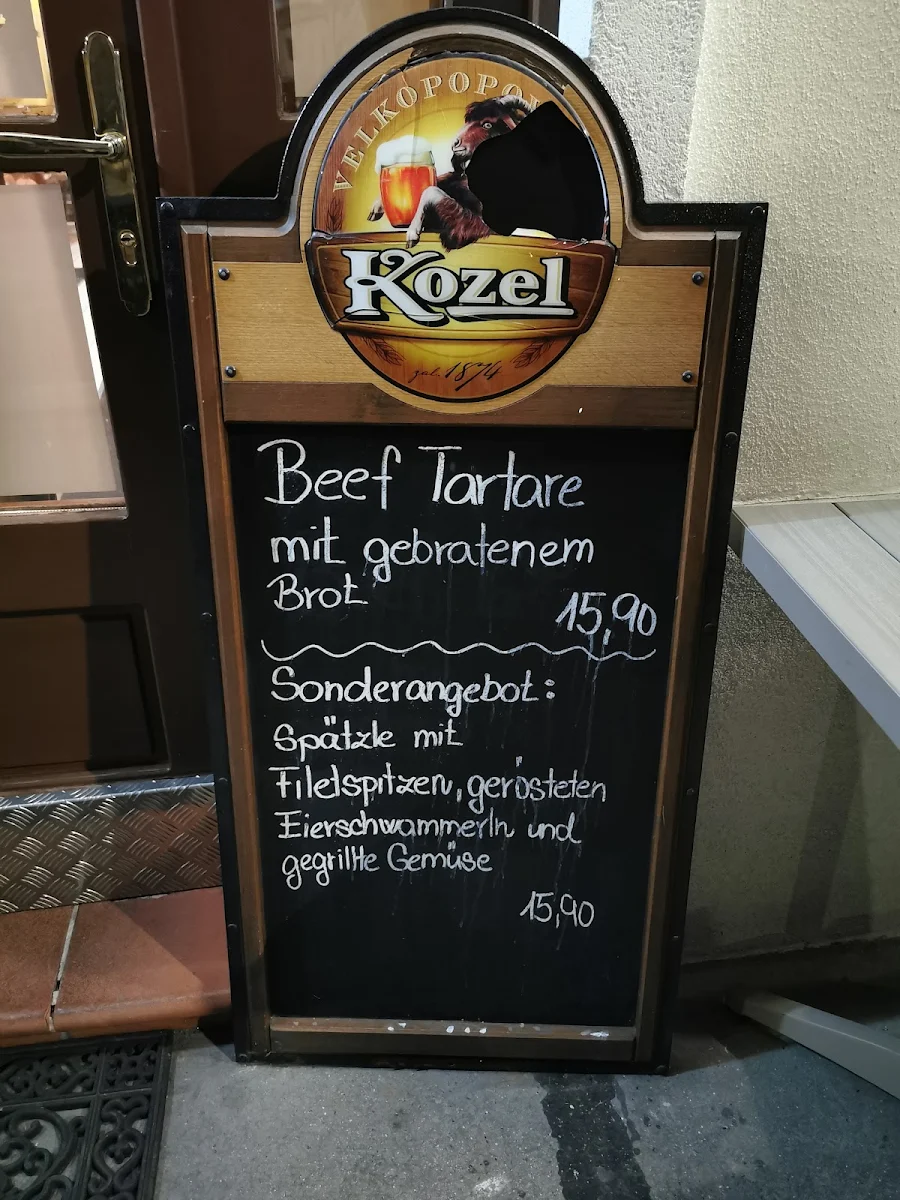 VELKOPOPO
Kozel
zal. 1874
Beef Tartare
mit gebratenem
Brot
15,90
Sonderangebot:
Spätzle mit
Filetspitzen, gerösteten
Eierschwammerln und
gegrillte Gemüse
15,90